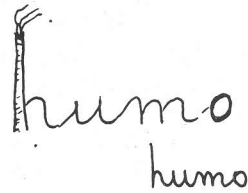 humo
humo